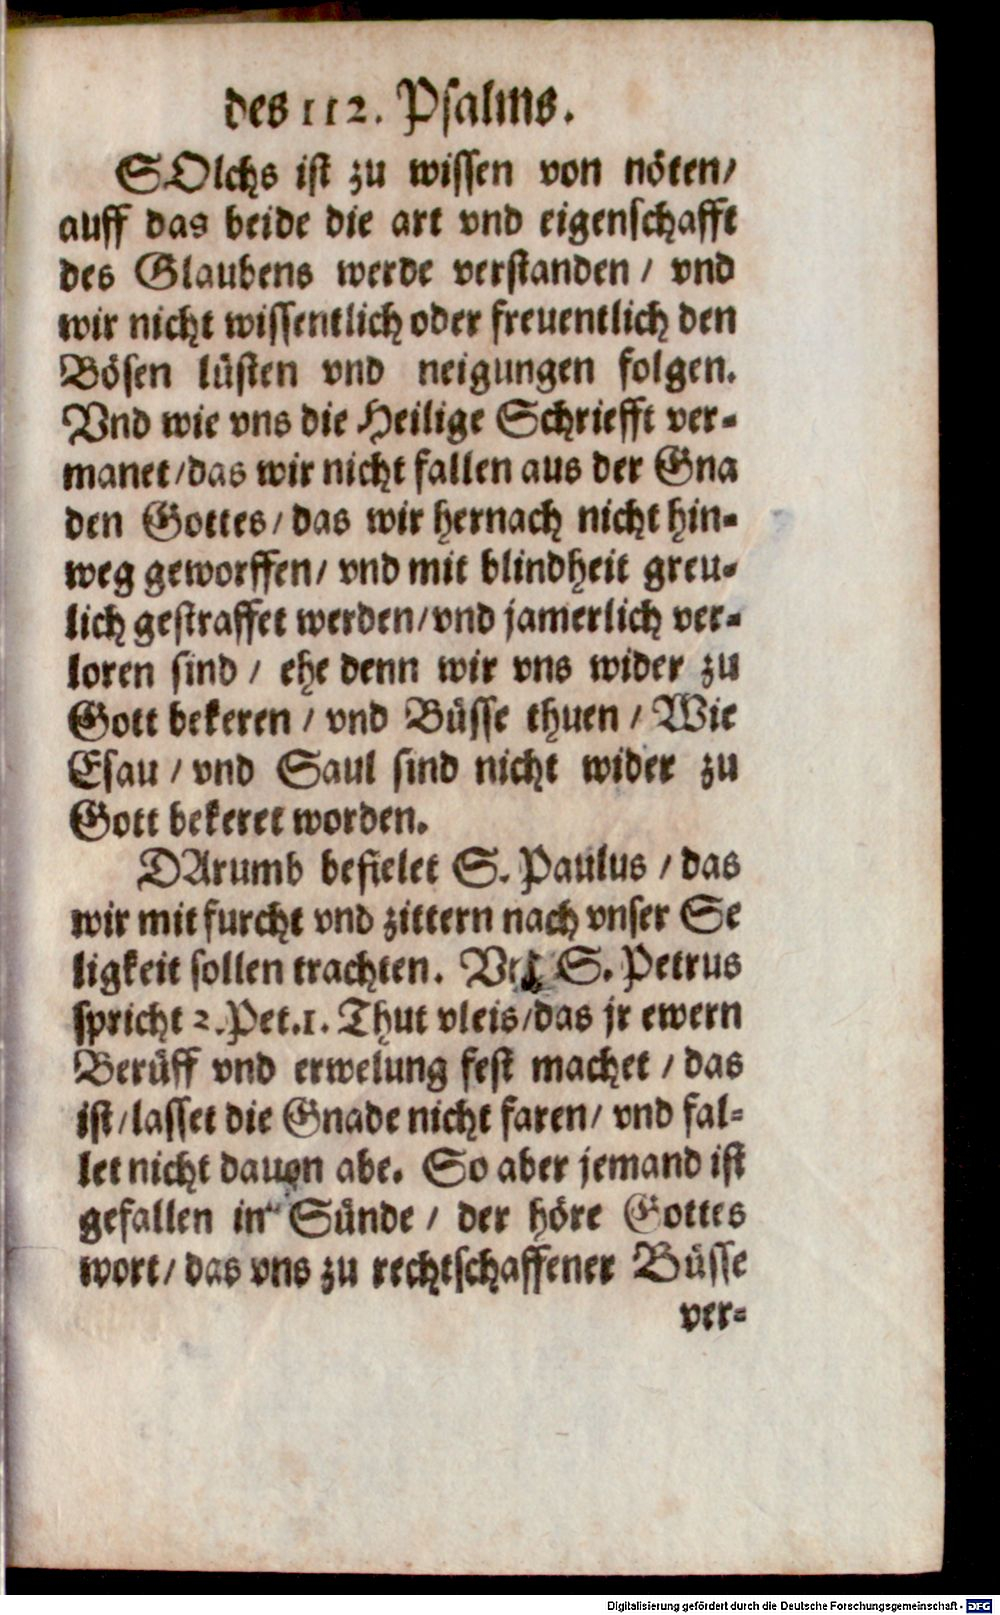 des 112. Psalms.
SOlchs ist zu wissen von nöten/
auff das beide die art vnd eigenschafft
des Glaubens werde verstanden / vnd
wir nicht wissentlich oder freuentlich den
Bösen lüsten vnd neigungen folgen.
Vnd wie vns die Heilige Schriefft ver-
manet/das wir nicht fallen aus der Gna
den Gottes/ das wir hernach nicht hin-
weg geworffen/ vnd mit blindheit greu-
lich gestraffet werden/vnd jamerlich ver-
loren sind / ehe denn wir vns wider zu
Gott bekeren / vnd Büsse thuen / Wie
Esau / vnd Saul sind nicht wider zu
Gott bekeret worden.
DArumb befielet S. Paulus / das
wir mit furcht vnd zittern nach vnser Se
ligkeit sollen trachten. S. Petrus
spricht 2. Pet.1. Thut vleis/das jr ewern
Berüff vnd erwelung fest machet / das
ist/lasset die Gnade nicht faren/ vnd fal-
let nicht dauon abe. So aber jemand ist
gefallen in Sünde / der höre Gottes
wort/ das vns zu rechtschaffener Büsse
ver-
Digitalisierung gefördert durch die Deutsche Forschungsgemeinschaft - DFG